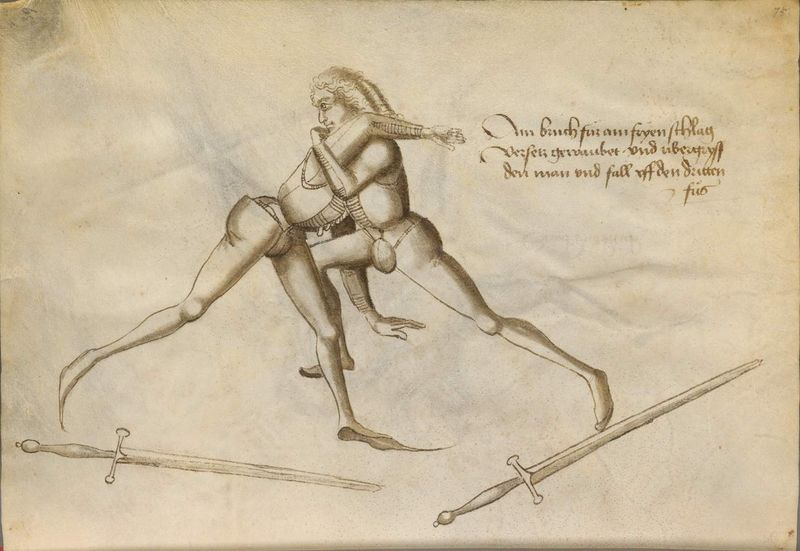 75
Ain bruch für ain fryen schlag
Versetz gewaubet vnd vbergryff
den man vnd fall vff den dritten
füs